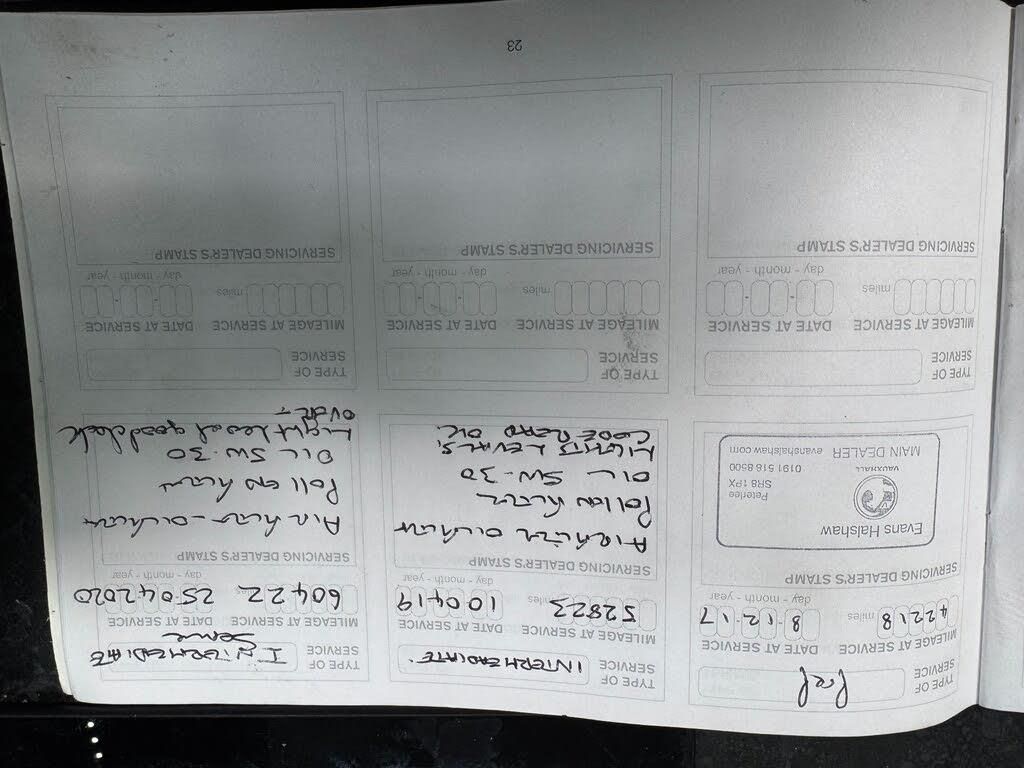 TYPE OF
SERVICE
MILEAGE AT SERVICE DATE AT SERVICE
42218 miles 8 12 17
day - month - year
SERVICING DEALER'S STAMP
Evans Halshaw
VAUXHALL
Peterlee
SR8 1PX
0191 518 8500
MAIN DEALER evanshalshaw.com
TYPE OF
SERVICE INTERMEADIATE
MILEAGE AT SERVICE DATE AT SERVICE
52823 miles 100419
day - month - year
SERVICING DEALER'S STAMP
AIR
OIL 5W-30
LIGHTS LEVALS,
CODE READ OK.
TYPE OF
SERVICE INTERMEDIATE
MILEAGE AT SERVICE DATE AT SERVICE
60422 miles 25042020
day - month - year
SERVICING DEALER'S STAMP
Air
OIL 5W-30
Light Level good
TYPE OF
SERVICE
MILEAGE AT SERVICE DATE AT SERVICE
miles
day - month - year
SERVICING DEALER'S STAMP
TYPE OF
SERVICE
MILEAGE AT SERVICE DATE AT SERVICE
miles
day - month - year
SERVICING DEALER'S STAMP
TYPE OF
SERVICE
MILEAGE AT SERVICE DATE AT SERVICE
miles
day - month - year
SERVICING DEALER'S STAMP
23